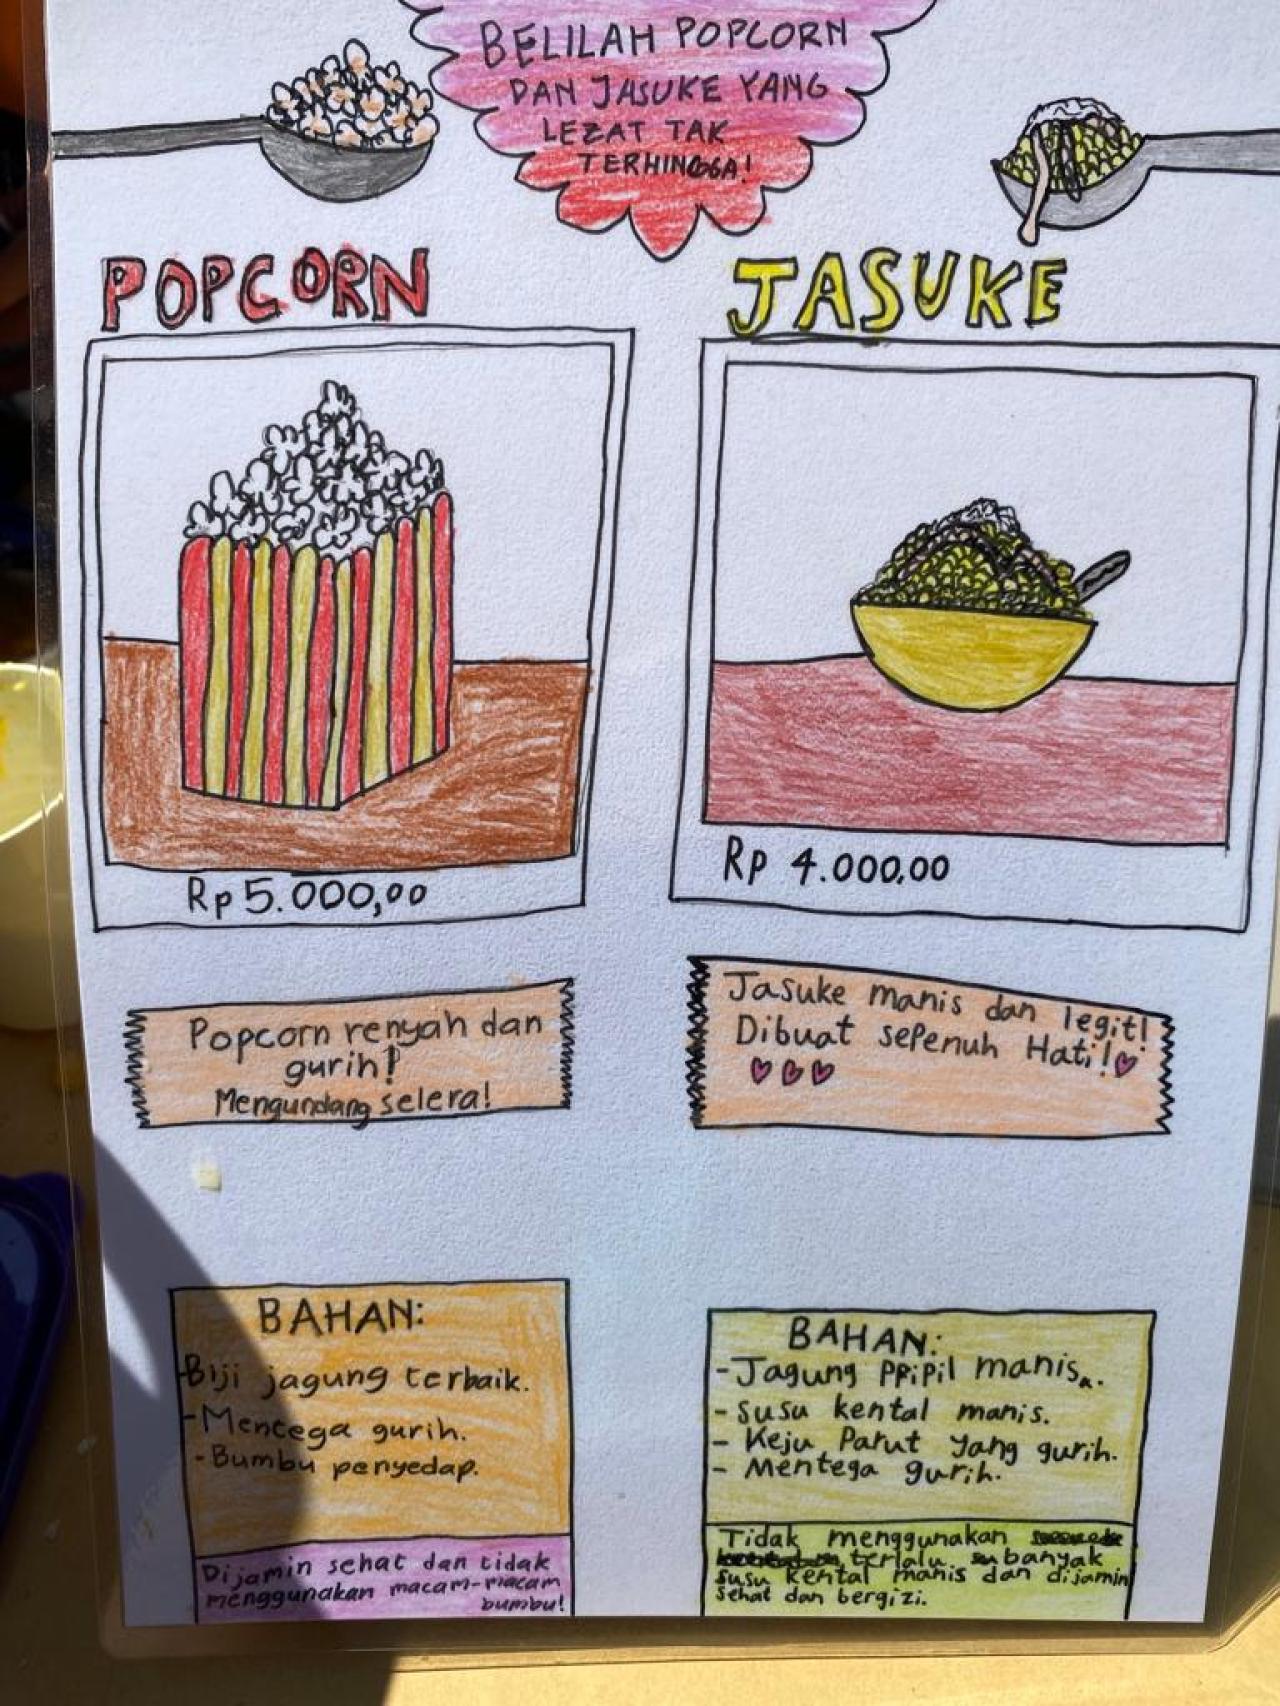 BELILAH POPCORN
DAN JASUKE YANG
LEZAT TAK
TERHINGGA!
POPCORN
Rp 5.000,00
Popcorn renyah dan
gurih!
Mengundang selera!
BAHAN:
-Biji jagung terbaik.
-Mentega gurih.
-Bumbu penyedap.
Dijamin sehat dan tidak
menggunakan macam-macam
bumbu!
JASUKE
Rp 4.000,00
Jasuke manis dan legit!
Dibuat sepenuh Hati!
BAHAN:
-Jagung Pipil manis.
-Susu kental manis.
- Keju Parut yang gurih.
- Mentega gurih.
Tidak menggunakan
terlalu banyak
susu kental manis dan dijamin
sehat dan bergizi.